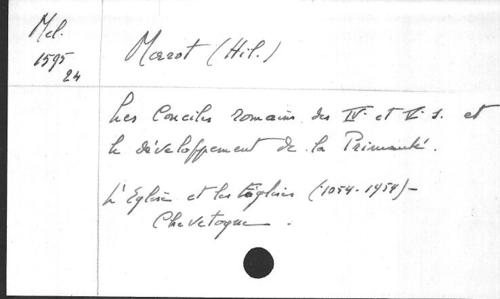 Mel.
1595
24
Marot (Hil.)
Les Conciles romains des IVe et Ve s. et
le développement de la Primauté.
L'Eglise et les Eglises (1054-1954) -
Chevetogne.